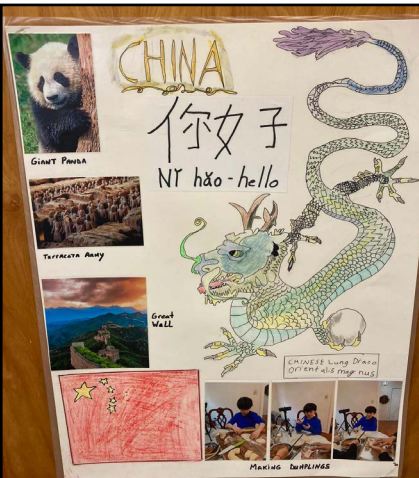 CHINA
你好
Nǐ hǎo - hello
GIANT PANDA
TERRACOTA ARMY
Great
Wall
CHINESE Lung Draco
Orientalis magnus
MAKING DUMPLINGS